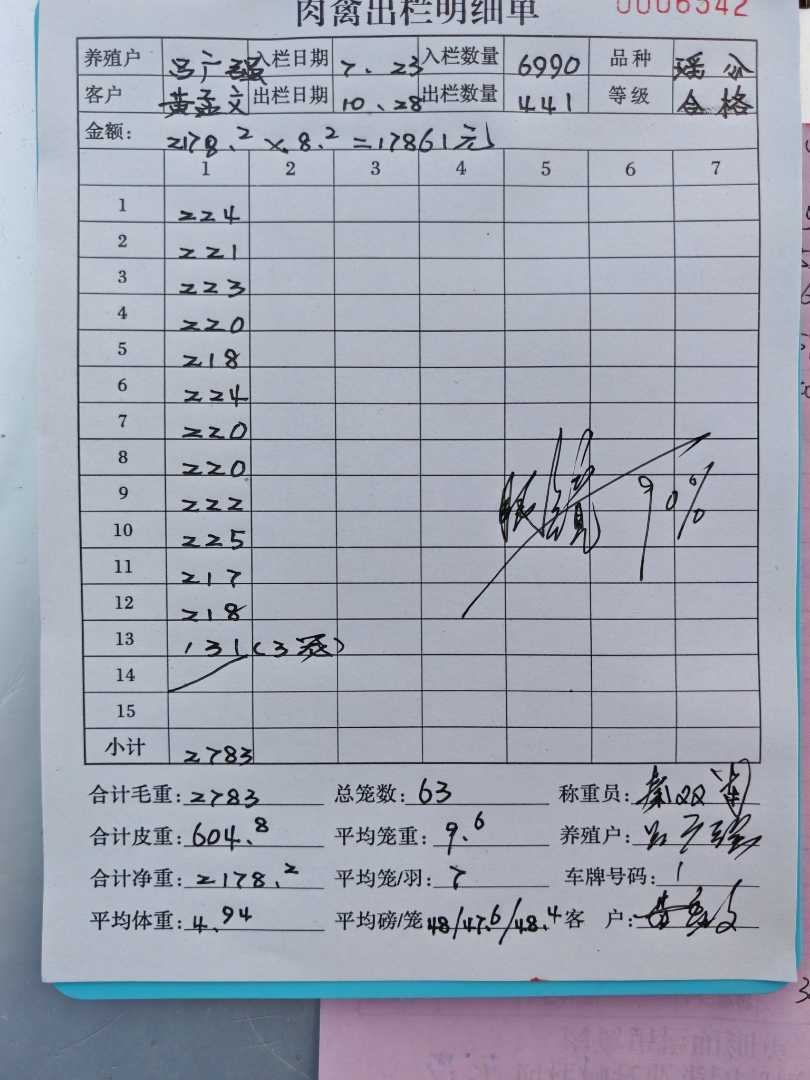 肉禽出栏明细单
0006342
养殖户 吕广强 入栏日期 7.23 入栏数量 6990 品种 瑶公
客户 黄孟文 出栏日期 10.28 出栏数量 441 等级 合格
金额: 2178.2×8.2=17861元
1 2 3 4 5 6 7
1 224
2 221
3 223
4 220
5 218
6 224
7 220
8 220
9 222
90%
10 225
11 217
12 218
13 131(3笼)
14
15
小计 2783
合计毛重: 2783 总笼数: 63 称重员:
合计皮重: 604.8 平均笼重: 9.6 养殖户:
合计净重: 2178.2 平均笼/羽: 7 车牌号码: 1
平均体重: 4.94 平均磅/笼 48/47.6/48.4 客 户: